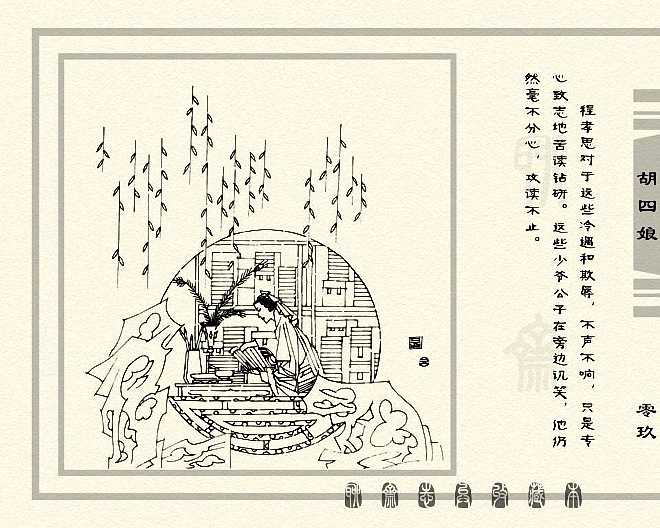 胡四娘
零玖
程孝思对于这些冷遇和欺辱，不声不响，只是专
心致志地苦读钻研。这些少爷公子在旁边讥笑，他仍
然毫不分心，攻读不止。